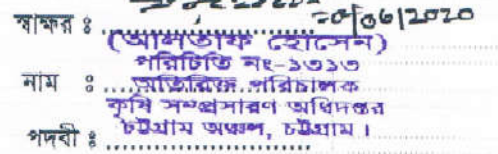 স্বাক্ষর ঃ
০৮/06/2020
(আলতাফ হোসেন)
পরিচিতি নং-১৩১৩
নাম ঃ
অতিরিক্ত পরিচালক
কৃষি সম্প্রসারণ অধিদপ্তর
পদবী ঃ
চট্টগ্রাম অঞ্চল, চট্টগ্রাম।